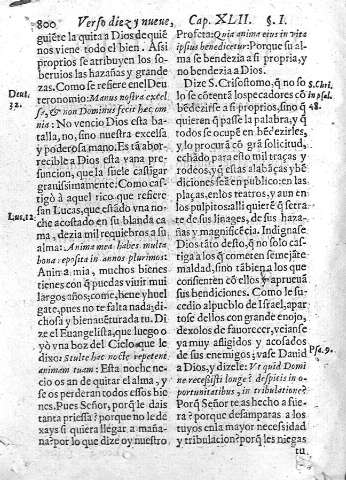 800 Verso diez y nueve, Cap. XLII. §. I.
guiẽte la quita a Dios de quiẽ
nos viene todo el bien. Assi
proprios se atribuyen los so-
beruios las hazañas y grande-
zas. Como se refiere en el Deu-
teronomio: Manus nostra excel-
sa, & non Dominus fecit hæc om-
nia: No vencio Dios esta ba-
talla, no, sino nuestra excelsa
y poderosa mano. Es tã abor-
recible a Dios esta vana pre-
suncion, que la suele castigar
grauissimamente. Como cas-
tigò a aquel rico que refiere
san Lucas, que estãdo vna no-
che acostado en su blanda ca-
ma, dezia mil requiebros a su
alma: Anima mea habes multa
bona reposita in annos plurimos:
Anima mia, muchos bienes
tienes con q̃ puedas viuir mui
largos años; come, beue y huel
gate, pues no te falta nada; di-
chosa y bienauẽturada tu. Di-
ze el Euangelista, que luego o
yò vna boz del Cielo que le
dixo: Stulte hac nocte repetent
animam tuam: Esta noche ne-
cio os an de quitar el alma, y
se os perderan todos essos bie
nes. Pues Señor, porq̃ le dais
tanta priessa? porque no le de
xays si quiera llegar a maña-
na? por lo que dize oy nuestro
Deut.
32.
Luc. 12
Profeta: Quia anima eius in vita
ipsius benedicetur: Porque su al-
ma se bendezia a si propria, y
no bendezia a Dios.
Dize S. Crisostomo, q̃ no so
lo se cõtentã los pecadores cõ
bẽdezirse a si proprios, sino q̃
quieren q̃ passe la palabra, y q̃
todos se ocupẽ en bẽdezirles,
y lo procurã cõ grã solicitud,
echãdo para esto mil traças y
rodeos, y q̃ estas alabãças y bẽ
diciones seã en publico: en las
plaças, en los teatros, y aun en
los pulpitos quierẽ q̃ se tra-
te de sus linages, de sus haza-
ñas y magnificẽcia. Indignase
Dios tãto desto, q̃ no solo cas-
tiga a los q̃ cometen semejãte
maldad, sino tãbien a los que
consienten cõ ellos y aprueuã
sus bendiciones. Como le su-
cedio al pueblo de Israel, apar
tose dellos con grande enojo,
dexolos de fauorecer, veianse
ya muy afligidos y acosados
de sus enemigos; vase Dauid
a Dios, y dizele: Vt quid Domi
ne recessisti longe? despicis in o-
portunitatibus, in tribulatione?
Porq̃ Señor te as hecho a fue-
ra? porque desamparas a los
tuyos en la mayor necessidad
y tribulacion? porq̃ les niegas
tu
S. Chri.
in psal.
48.
Psa. 9.